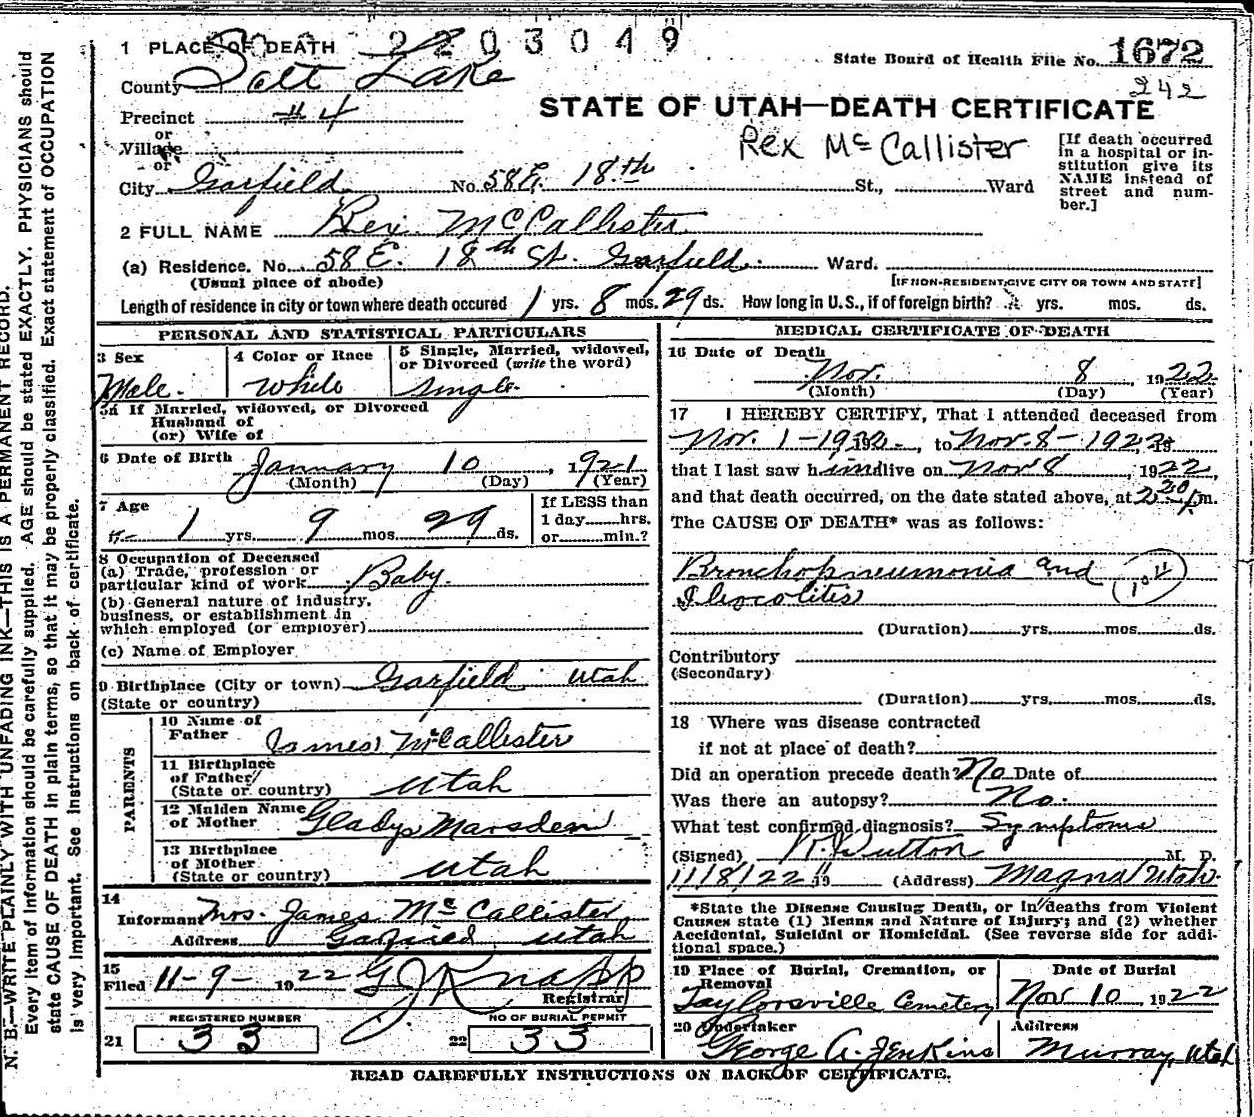 2203049
1 PLACE OF DEATH
State Board of Health File No. 1672
County Salt Lake
242
STATE OF UTAH—DEATH CERTIFICATE
Precinct #4
or
Village
or
Rex McCallister
[If death occurred
in a hospital or in-
stitution give its
NAME instead of
street and num-
ber.]
City Garfield No. 58 E. 18th St., Ward
2 FULL NAME Rex McCallister
(a) Residence. No. 58 E. 18th St. Garfield. Ward.
(Usual place of abode) [IF NON-RESIDENT, GIVE CITY OR TOWN AND STATE]
Length of residence in city or town where death occured 1 yrs. 8 mos. 29 ds. How long in U. S., if of foreign birth? yrs. mos. ds.
PERSONAL AND STATISTICAL PARTICULARS
3 Sex Male.
4 Color or Race White
5 Single, Married, widowed,
or Divorced (write the word)
Single.
5a If Married, widowed, or Divorced
Husband of
(or) Wife of
6 Date of Birth January 10, 1921
(Month) (Day) (Year)
7 Age 1 yrs. 9 mos. 29 ds.
If LESS than
1 day......hrs.
or......min.?
8 Occupation of Deceased
(a) Trade, profession or
particular kind of work Baby.
(b) General nature of industry,
business, or establishment in
which employed (or employer)
(c) Name of Employer
9 Birthplace (City or town) Garfield Utah
(State or country)
PARENTS
10 Name of
Father James McCallister
11 Birthplace
of Father
(State or country) Utah
12 Maiden Name
of Mother Gladys Marsden
13 Birthplace
of Mother
(State or country) Utah
14
Informant Mrs. James McCallister
Address Garfield, Utah
15
Filed 11-9- 1922 G J Knapp
Registrar
REGISTERED NUMBER NO OF BURIAL PERMIT
21 33 22 33
MEDICAL CERTIFICATE OF DEATH
16 Date of Death
Nov. 8, 1922
(Month) (Day) (Year)
17 I HEREBY CERTIFY, That I attended deceased from
Nov. 1-1922, to Nov. 8-1922
that I last saw him alive on Nov 8, 1922,
and that death occurred, on the date stated above, at 2:30 Pm.
The CAUSE OF DEATH* was as follows:
Bronchopneumonia and
Ileocolitis
(Duration) yrs. mos. ds.
Contributory
(Secondary)
(Duration) yrs. mos. ds.
18 Where was disease contracted
if not at place of death?
Did an operation precede death? No Date of
Was there an autopsy? No.
What test confirmed diagnosis? Symptoms
(Signed) Hutton M. D.
11/8/22 19 (Address) Magna Utah.
*State the Disease Causing Death, or in deaths from Violent
Causes state (1) Means and Nature of Injury; and (2) whether
Accidental, Suicidal or Homicidal. (See reverse side for addi-
tional space.)
19 Place of Burial, Cremation, or
Removal
Taylorsville Cemetery
Date of Burial
Nov 10 1922
20 Undertaker
George A. Jenkins
Address
Murray, Utah
READ CAREFULLY INSTRUCTIONS ON BACK OF CERTIFICATE.
N. B.—WRITE PLAINLY WITH UNFADING INK—THIS IS A PERMANENT RECORD.
Every item of information should be carefully supplied. AGE should be stated EXACTLY. PHYSICIANS should
state CAUSE OF DEATH in plain terms, so that it may be properly classified. Exact statement of OCCUPATION
is very important. See instructions on back of certificate.